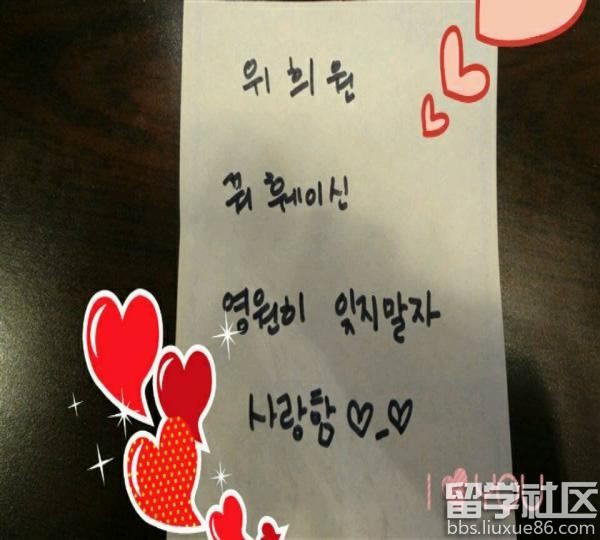 위 희 원
꿔 훼이신
영원히 잊지말자
사랑함 ♡_♡
I ♥ YOU
留学社区
bbs.liuxue86.com